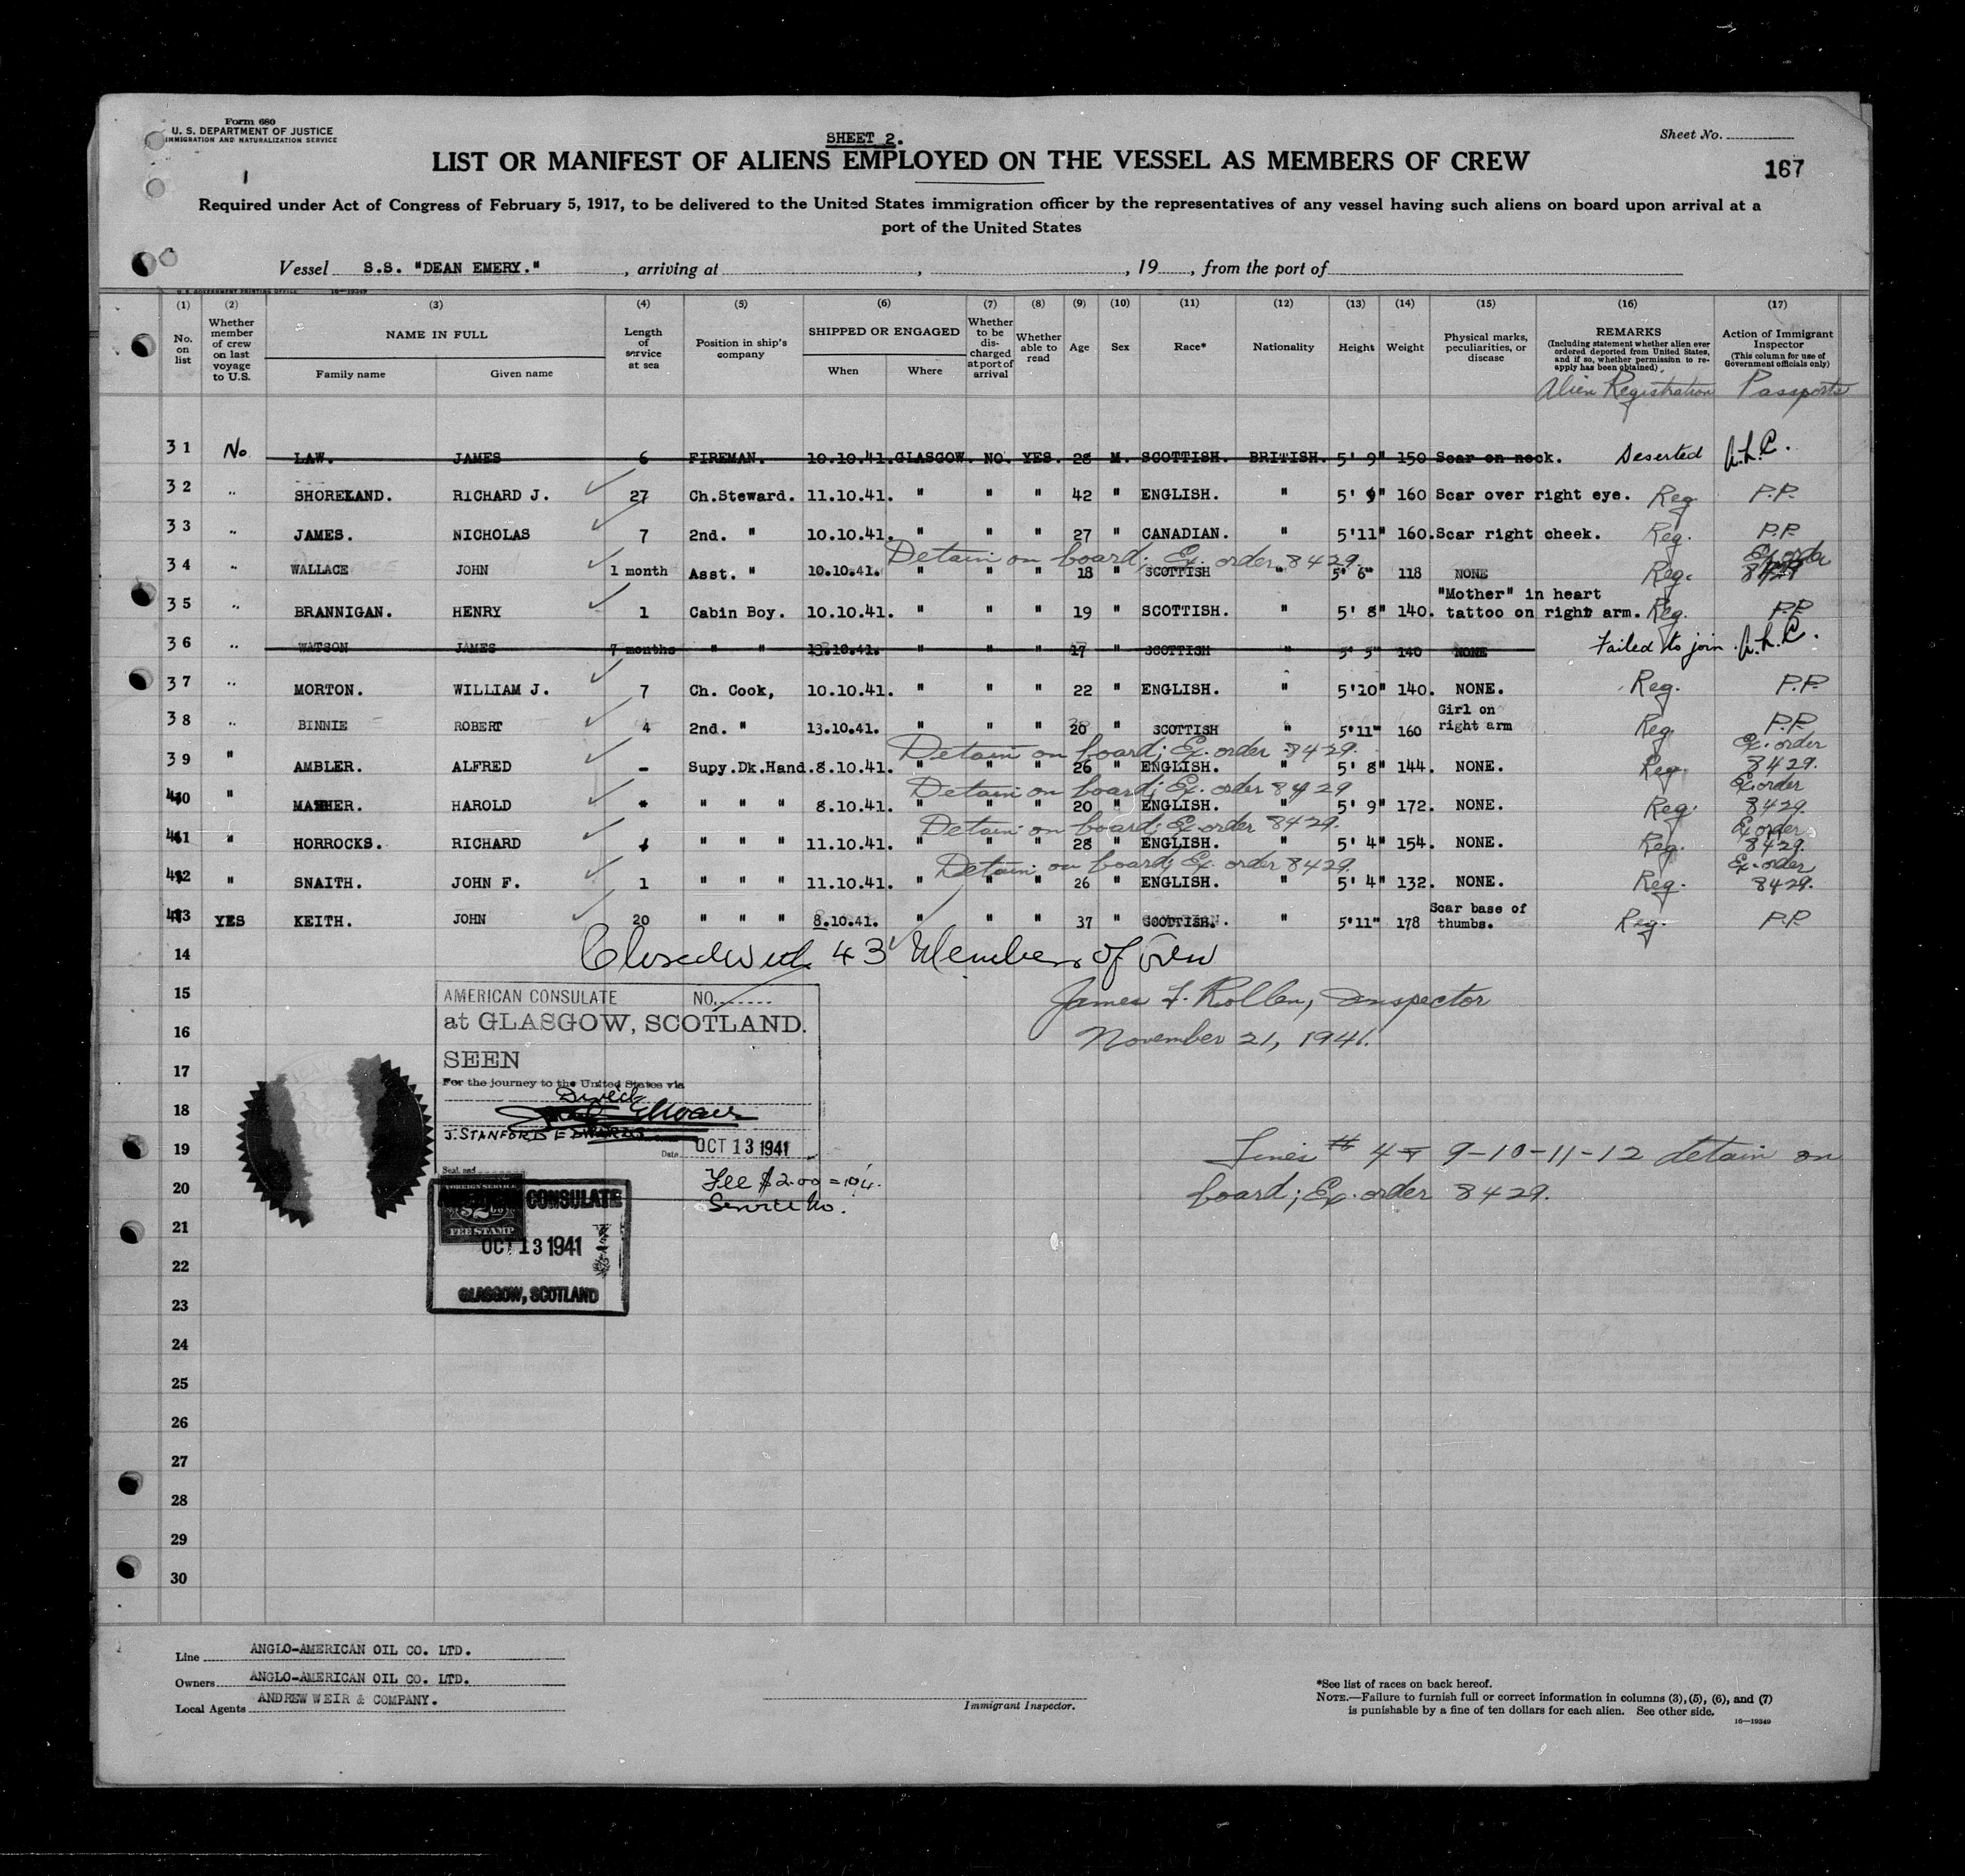 Form 680
U. S. DEPARTMENT OF JUSTICE
IMMIGRATION AND NATURALIZATION SERVICE
SHEET 2.
Sheet No.
LIST OR MANIFEST OF ALIENS EMPLOYED ON THE VESSEL AS MEMBERS OF CREW
167
1
Required under Act of Congress of February 5, 1917, to be delivered to the United States immigration officer by the representatives of any vessel having such aliens on board upon arrival at a
port of the United States
Vessel S.S. "DEAN EMERY." , arriving at , , 19 , from the port of
U. S. GOVERNMENT PRINTING OFFICE 16—19349
(1) (2) (3) (4) (5) (6) (7) (8) (9) (10) (11) (12) (13) (14) (15) (16) (17)
No. on list
Whether member of crew on last voyage to U.S.
NAME IN FULL
Family name Given name
Length of service at sea
Position in ship's company
SHIPPED OR ENGAGED
When Where
Whether to be discharged at port of arrival
Whether able to read
Age Sex Race* Nationality Height Weight
Physical marks, peculiarities, or disease
REMARKS
(Including statement whether alien ever ordered deported from United States, and if so, whether permission to reapply has been obtained)
Action of Immigrant Inspector
(This column for use of Government officials only)
Alien Registration Passports
31 No LAW. JAMES 6 FIREMAN. 10.10.41. GLASGOW. NO. YES. 28 M. SCOTTISH. BRITISH. 5' 9" 150 Scar on neck. Deserted A.L.C.
32 " SHORELAND. RICHARD J. 27 Ch.Steward. 11.10.41. " " " 42 " ENGLISH. " 5' 9" 160 Scar over right eye. Reg P.P.
33 " JAMES. NICHOLAS 7 2nd. " 10.10.41. " " " 27 " CANADIAN. " 5'11" 160. Scar right cheek. Reg. P.P.
Detain on board; Ex. order 8429. Ex. order
34 " WALLACE JOHN 1 month Asst. " 10.10.41. " " " 18 " SCOTTISH " 5' 6" 118 NONE Reg. 8429
"Mother" in heart
35 " BRANNIGAN. HENRY 1 Cabin Boy. 10.10.41. " " " 19 " SCOTTISH. " 5' 8" 140. tattoo on right arm. Reg. P.P.
36 " WATSON JAMES 7 months " " 13.10.41. 17 " SCOTTISH " 5' 5" 140 NONE Failed to join. A.L.C.
37 " MORTON. WILLIAM J. 7 Ch. Cook, 10.10.41. " " " 22 " ENGLISH. " 5'10" 140. NONE. Reg. P.P.
Girl on
38 " BINNIE ROBERT 4 2nd. " 13.10.41. " " " 20 " SCOTTISH " 5'11" 160 right arm Reg. P.P.
Detain on board; Ex. order 8429. Ex. order
39 " AMBLER. ALFRED - Supy.Dk.Hand. 8.10.41. " " " 26 " ENGLISH. " 5' 8" 144. NONE. Reg. 8429.
Detain on board; Ex. order 8429 Ex. order
40 " MATHER. HAROLD " " " 8.10.41. " " " 20 " ENGLISH. " 5' 9" 172. NONE. Reg. 8429
Detain on board; Ex. order 8429. Ex order
41 " HORROCKS. RICHARD " " " 11.10.41. " " " 28 " ENGLISH. " 5' 4" 154. NONE. Reg. 8429.
Detain on board; Ex. order 8429. Ex. order
42 " SNAITH. JOHN F. 1 " " " 11.10.41. " " " 26 " ENGLISH. " 5' 4" 132. NONE. Reg. 8429.
Scar base of
43 YES KEITH. JOHN 20 " " " 8.10.41. " " " 37 " SCOTTISH. " 5'11" 178 thumbs. Reg. P.P.
14 Closed with 43 Members of Crew
15 AMERICAN CONSULATE NO.
James F. Rollen, Inspector
at GLASGOW, SCOTLAND.
16
November 21, 1941.
SEEN
17
For the journey to the United States via
Direct
18
J. STANFORD EDWARDS
19 Date OCT 13 1941
Lines # 4 9-10-11-12 detain on
Seal and
20 Fee $2.00 =10/4.
board; Ex. order 8429.
Service No.
AMERICAN CONSULATE
FOREIGN SERVICE
$2.00
FEE STAMP
21
OCT 13 1941
22
GLASGOW, SCOTLAND
23
24
25
26
27
28
29
30
Line ANGLO-AMERICAN OIL CO. LTD.
Owners ANGLO-AMERICAN OIL CO. LTD.
Local Agents ANDREW WEIR & COMPANY.
Immigrant Inspector.
*See list of races on back hereof.
NOTE.—Failure to furnish full or correct information in columns (3), (5), (6), and (7)
is punishable by a fine of ten dollars for each alien. See other side.
16—19349